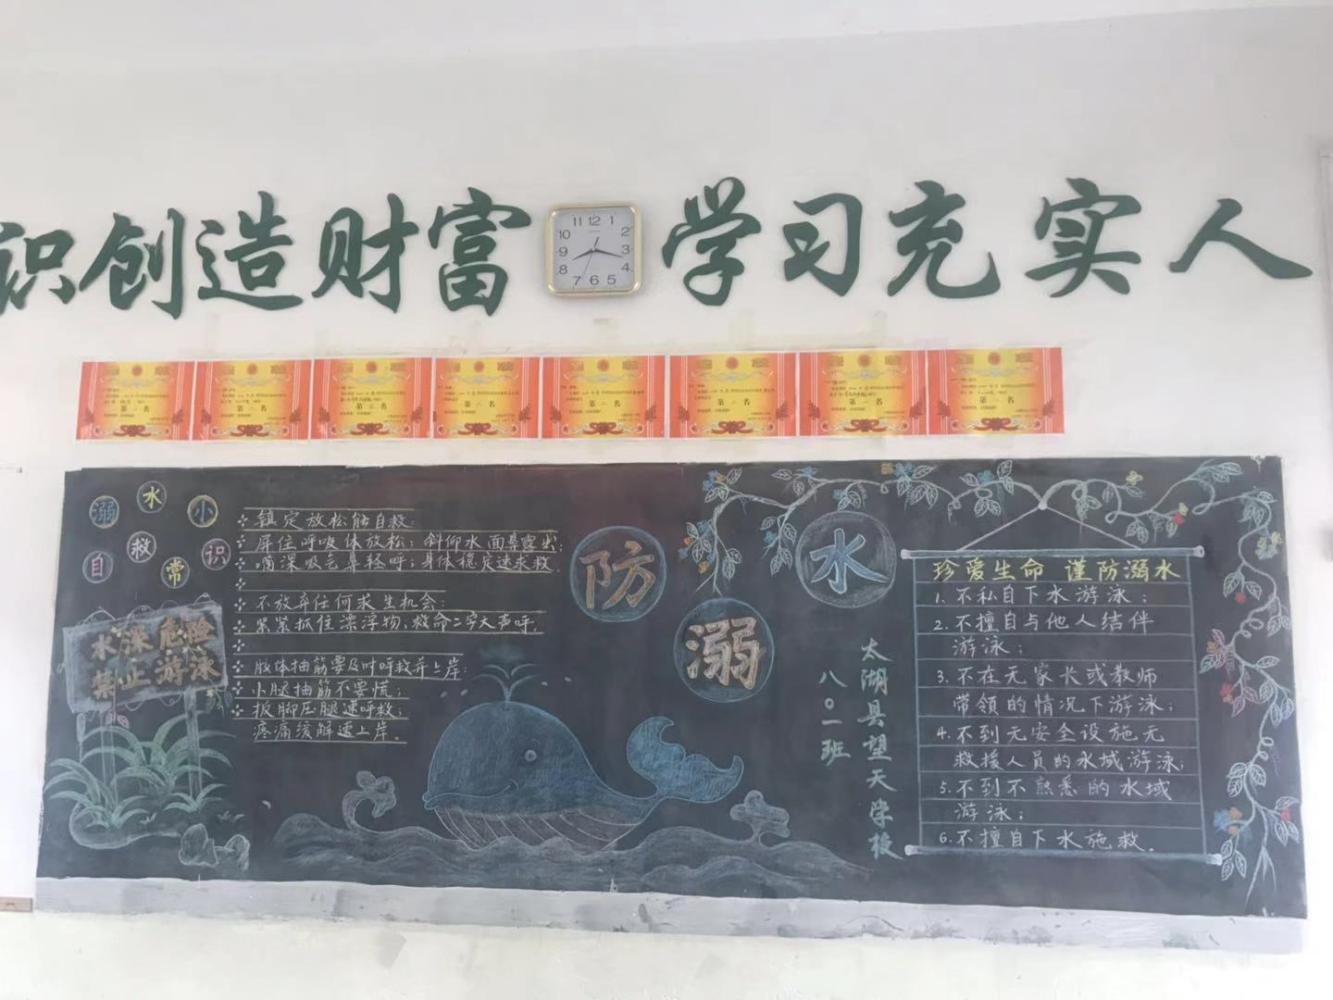 识创造财富
学习充实人
11 12 1
10 2
9 3
8 4
7 6 5
第一名
第二名
第三名
第一名
第一名
第一名
第一名
第一名
溺水小
自救常识
水深危险
禁止游泳
镇定放松能自救:
屏住呼吸体放松;斜仰水面鼻露出;
嘴深吸气鼻轻呼;身体稳定速求救
不放弃任何求生机会:
紧紧抓住漂浮物,救命二字大声呼.
肢体抽筋要及时呼救并上岸:
小腿抽筋不要慌;
扳脚压腿速呼救;
疼痛缓解速上岸.
防溺水
太湖县望天学校
八〇一班
珍爱生命 谨防溺水
1.不私自下水游泳;
2.不擅自与他人结伴
游泳;
3.不在无家长或教师
带领的情况下游泳;
4.不到无安全设施无
救援人员的水域游泳;
5.不到不熟悉的水域
游泳;
6.不擅自下水施救.